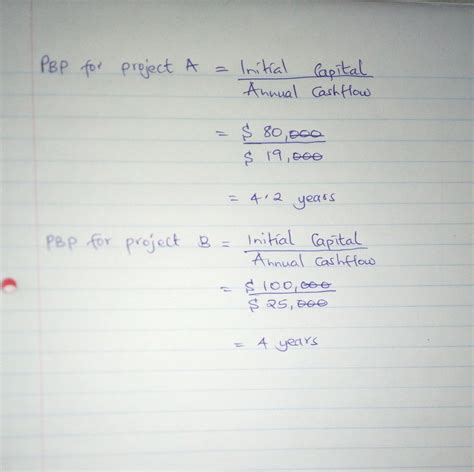 PBP for project A = Initial Capital
Annual Cashflow
= $ 80,000
$ 19,000
= 4.2 years
PBP for project B = Initial Capital
Annual Cashflow
= $ 100,000
$ 25,000
= 4 years